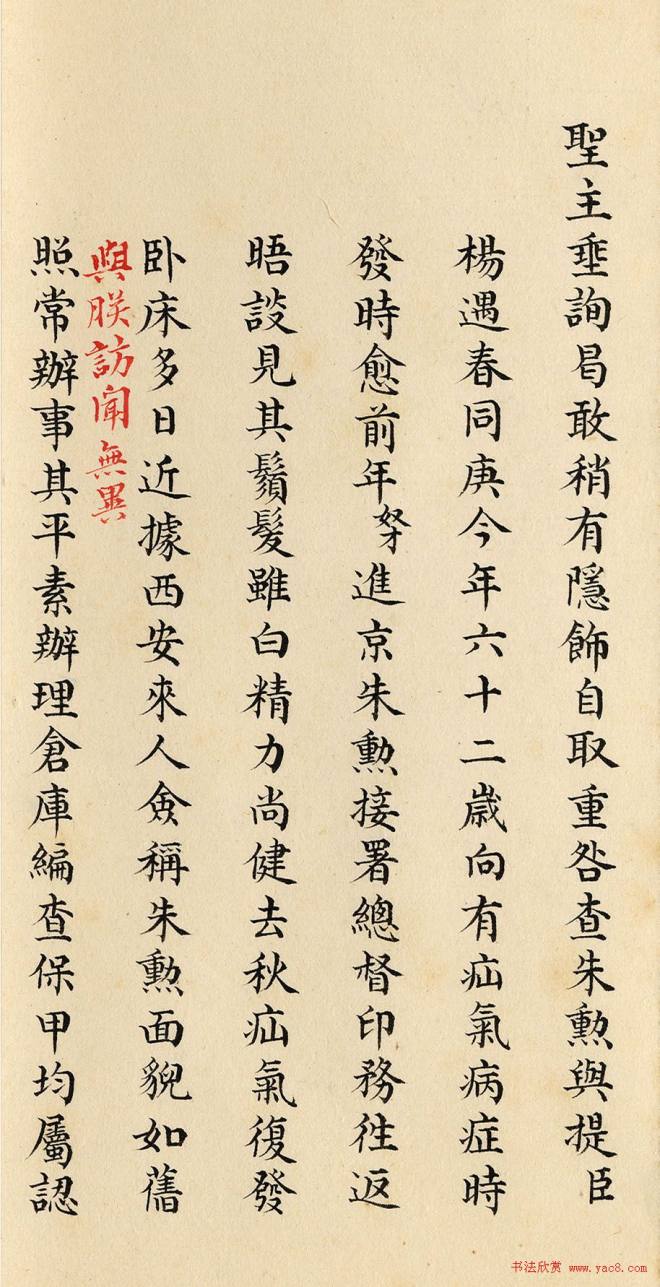 聖主垂詢曷敢稍有隱飾自取重咎查朱勳與提臣
楊遇春同庚今年六十二歲向有疝氣病症時
發時愈前年奴才進京朱勳接署總督印務往返
晤談見其鬚髮雖白精力尚健去秋疝氣復發
卧床多日近據西安來人僉稱朱勳面貌如舊
與朕訪聞無異
照常辦事其平素辦理倉庫編查保甲均屬認
书法欣赏 www.yac8.com